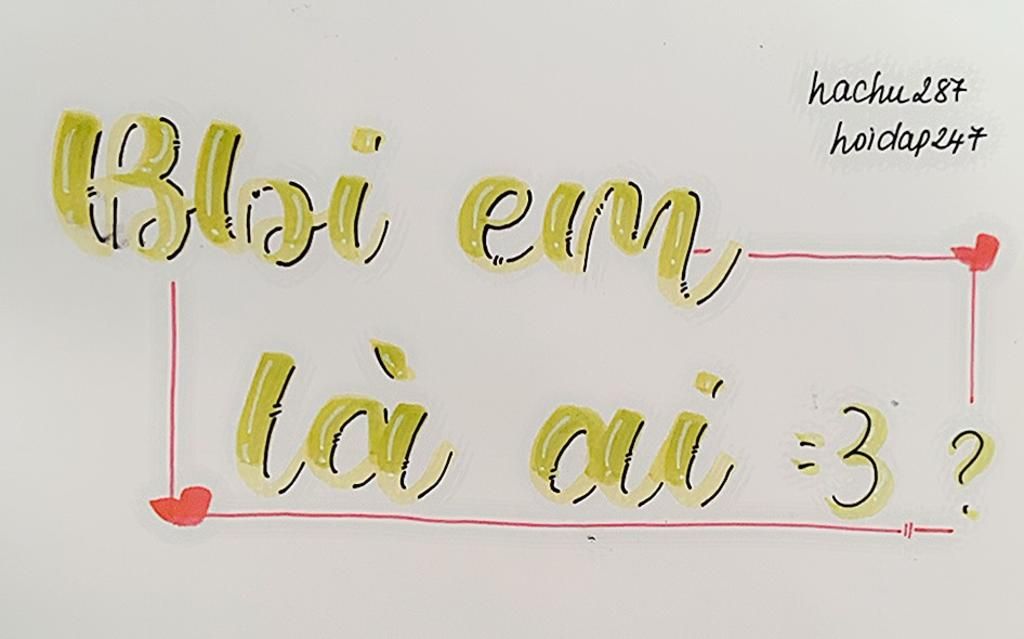 hachu287
hoidap247
Bbi em
là ai =3 ?